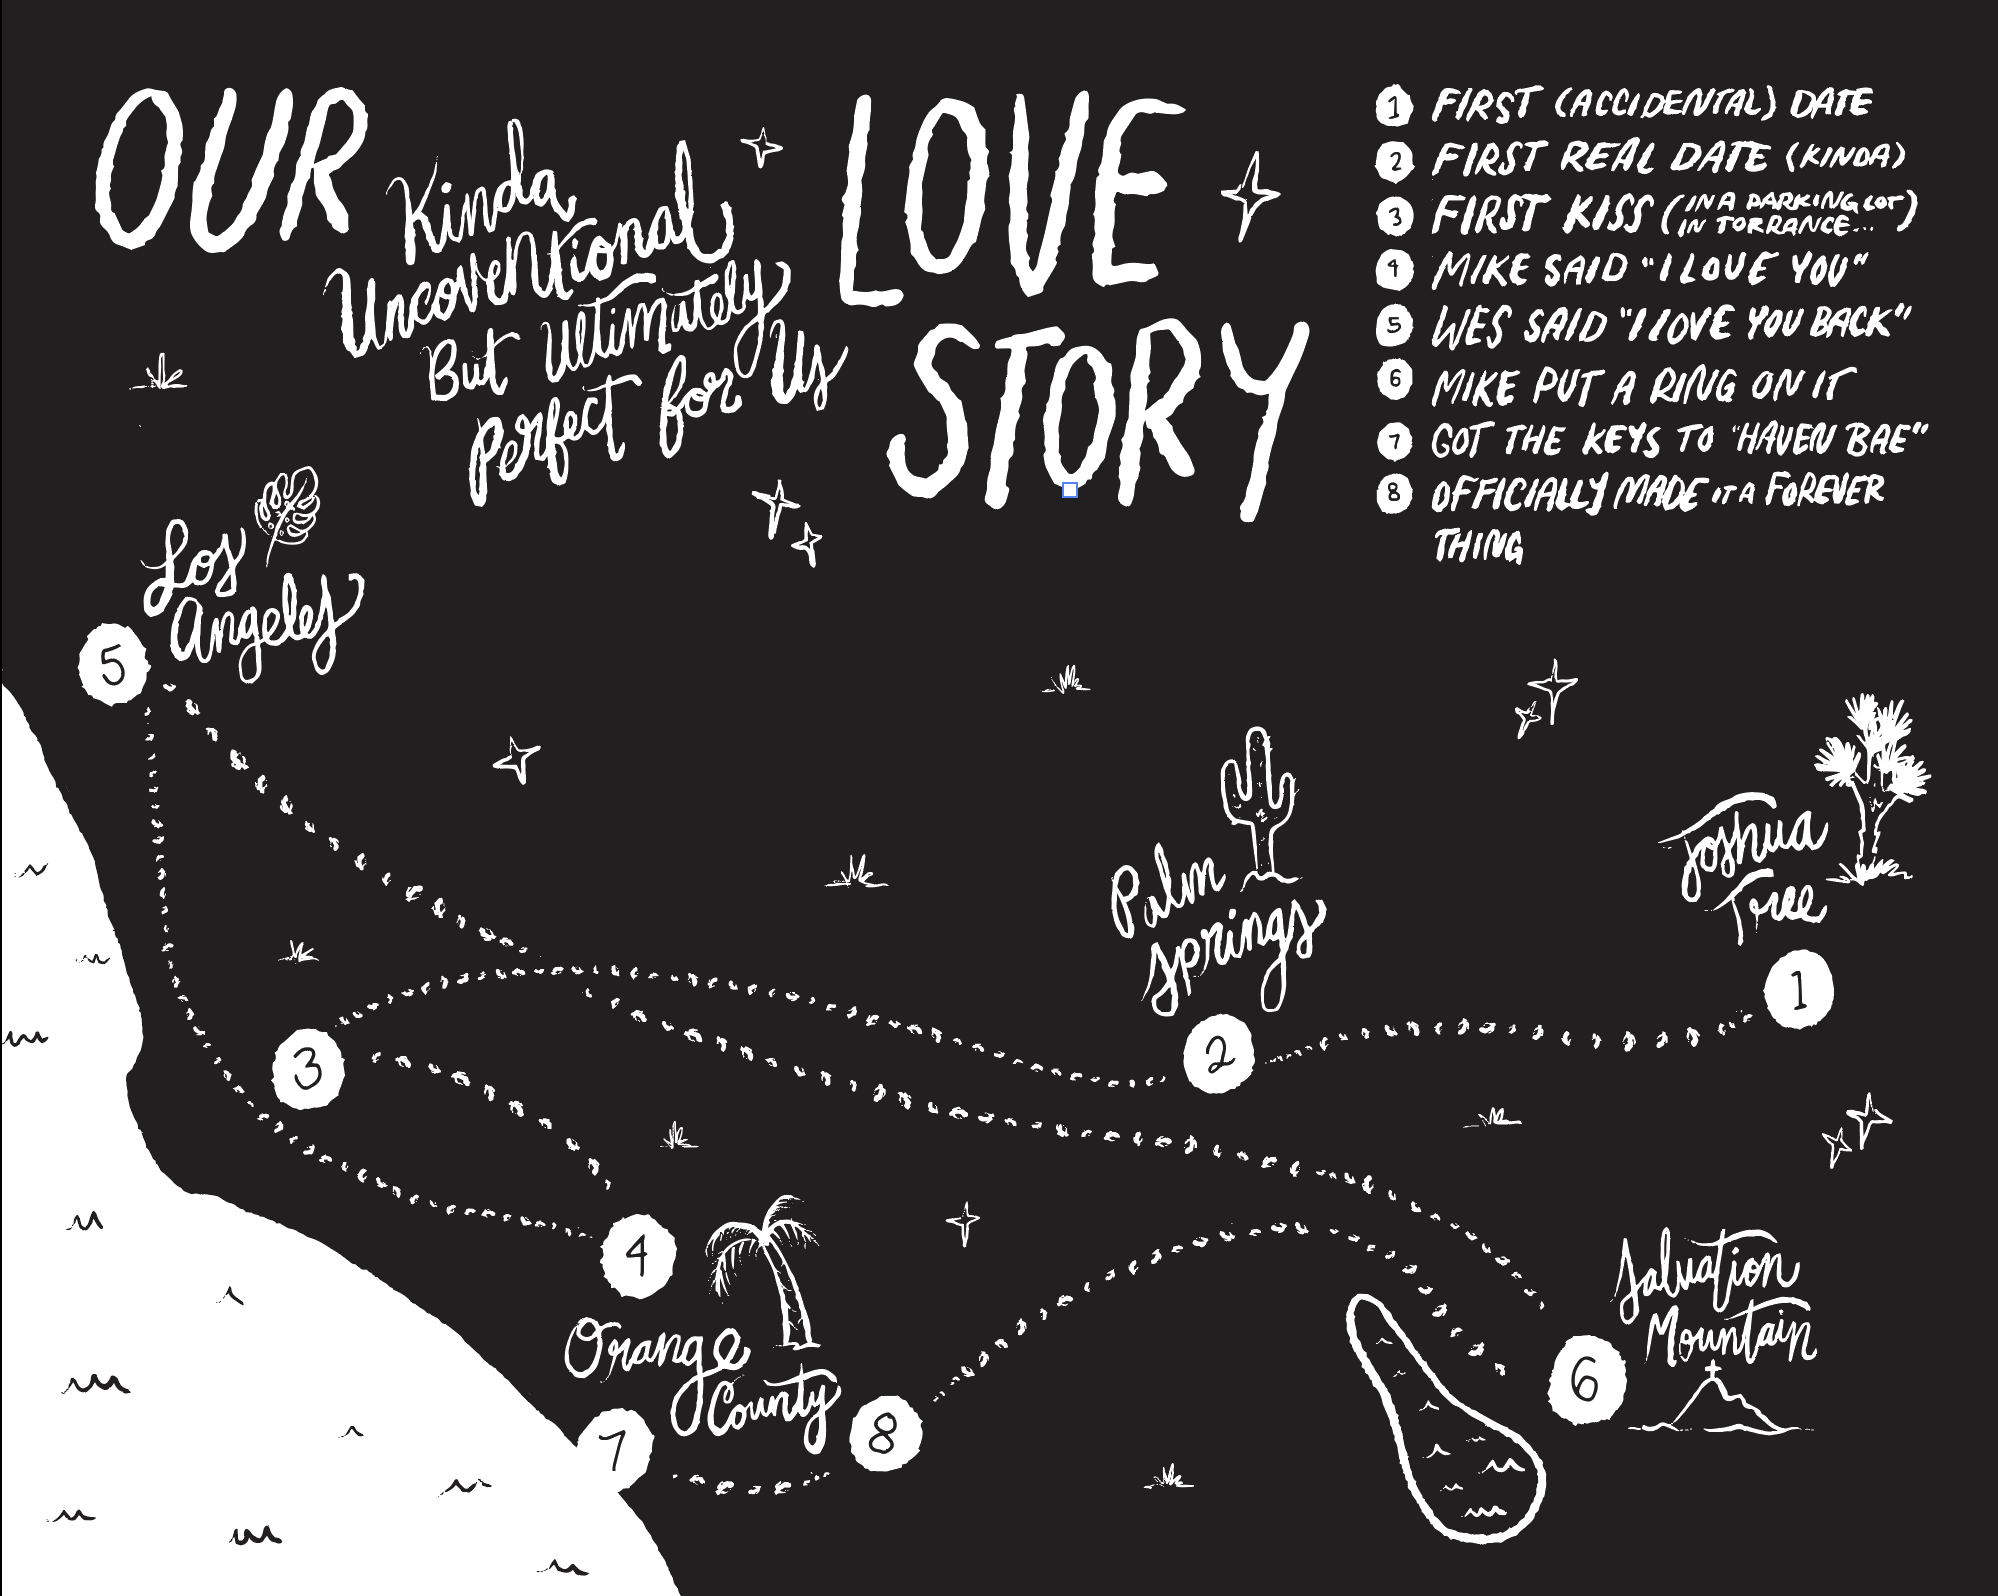 OUR
Kinda
Uncoventional
But Ultimately
Perfect for Us
LOVE
STORY
1 FIRST (ACCIDENTAL) DATE
2 FIRST REAL DATE (KINDA)
3 FIRST KISS (IN A PARKING LOT
IN TORRANCE...)
4 MIKE SAID "I LOVE YOU"
5 WES SAID "I LOVE YOU BACK"
6 MIKE PUT A RING ON IT
7 GOT THE KEYS TO "HAVEN BAE"
8 OFFICIALLY MADE IT A FOREVER
THING
Los
Angeles
5
Palm
Springs
2
Joshua
Tree
1
3
4
Orange
County
7
8
Salvation
Mountain
6